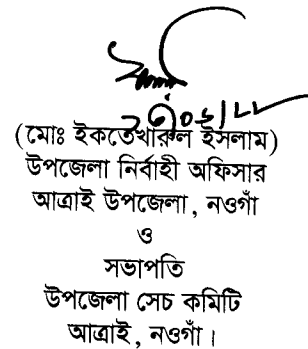 (মোঃ ইকতেখারুল ইসলাম)
উপজেলা নির্বাহী অফিসার
আত্রাই উপজেলা, নওগাঁ
ও
সভাপতি
উপজেলা সেচ কমিটি
আত্রাই, নওগাঁ।